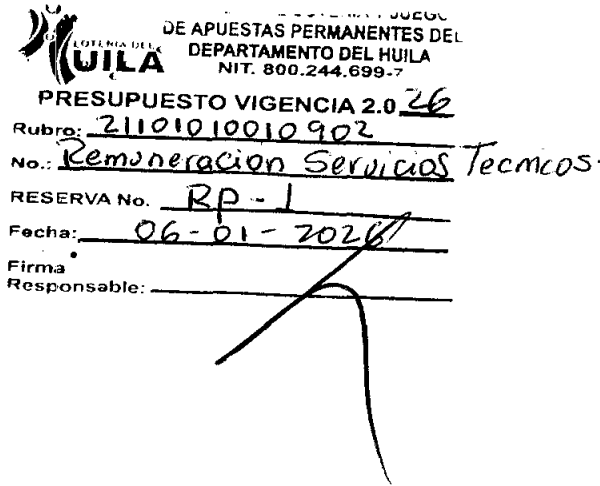 LOTERIA DEL
HUILA
Y JUEGO
DE APUESTAS PERMANENTES DEL
DEPARTAMENTO DEL HUILA
NIT. 800.244.699-7
PRESUPUESTO VIGENCIA 2.0 26
Rubro: 21101010010902
No.: Remuneracion Servicios Tecnicos.
RESERVA No. RP-1
Fecha: 06-01-2026
Firma
Responsable: